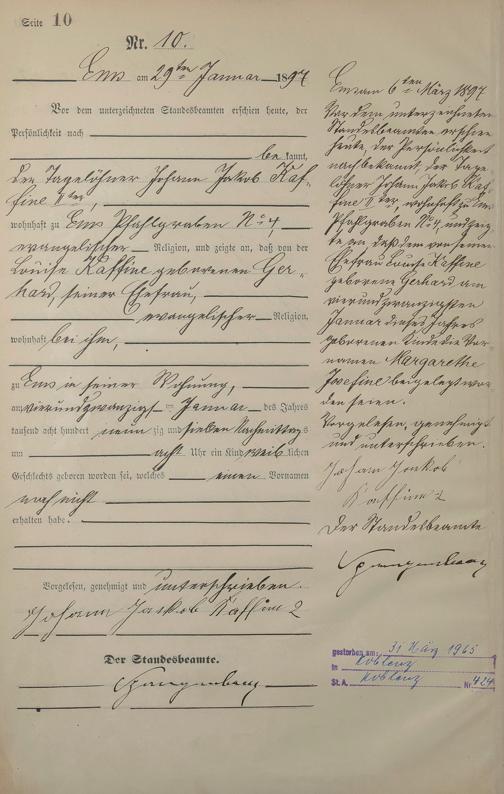 Seite 10
Nr. 10.
Ems am 29ten Januar 1897
Vor dem unterzeichneten Standesbeamten erschien heute, der
Persönlichkeit nach
be kannt,
der Tagelöhner Johann Jakob Kaf-
fine IIter,
wohnhaft zu Ems Pfahlgraben No 4
evangelischer Religion, und zeigte an, daß von der
Louise Kaffine geborenen Ger-
hard, seiner Ehefrau,
evangelischer Religion,
wohnhaft bei ihm,
zu Ems in seiner Wohnung,
am vierundzwanzigsten Januar des Jahres
tausend acht hundert neun zig und sieben Nachmittags
um acht Uhr ein Kind weib lichen
Geschlechts geboren worden sei, welches einen Vornamen
noch nicht
erhalten habe.
Vorgelesen, genehmigt und unterschrieben.
Johann Jackob Kaffine 2
Der Standesbeamte.
Spangenberg
Ems am 6ten März 1897
Vor dem unterzeichneten
Standesbeamten erschien
heute, der Persönlichkeit
nach bekannt, der Tage-
löhner Johann Jakob Kaf-
fine IIter, wohnhaft zu Ems
Pfahlgraben No 4, und zeig-
te an, daß dem von seiner
Ehefrau Louise Kaffine
geborene Gerhard am
vierundzwanzigsten
Januar dieses Jahres
geborenen Kinde die Vor-
namen Margarethe
Josefine beigelegt wor-
den seien.
Vorgelesen, genehmigt
und unterschrieben.
Johann Jackob
Kaffine 2
Der Standesbeamte
Spangenberg
gestorben am: 31. März 1965
in Koblenz
St. A. Koblenz Nr. 424